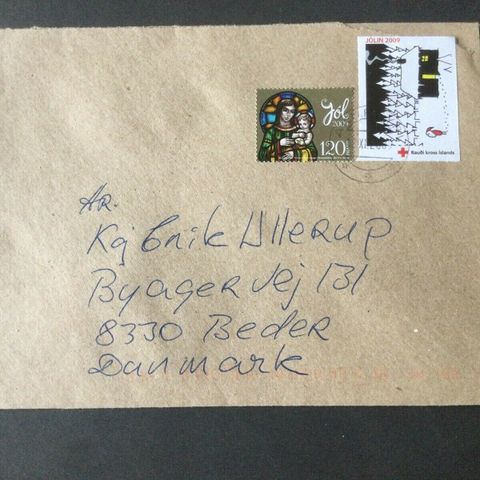 JÓLIN 2009
Jól
2009
120
Rauði kross Íslands
Byagervej 131
8330 Beder
Danmark